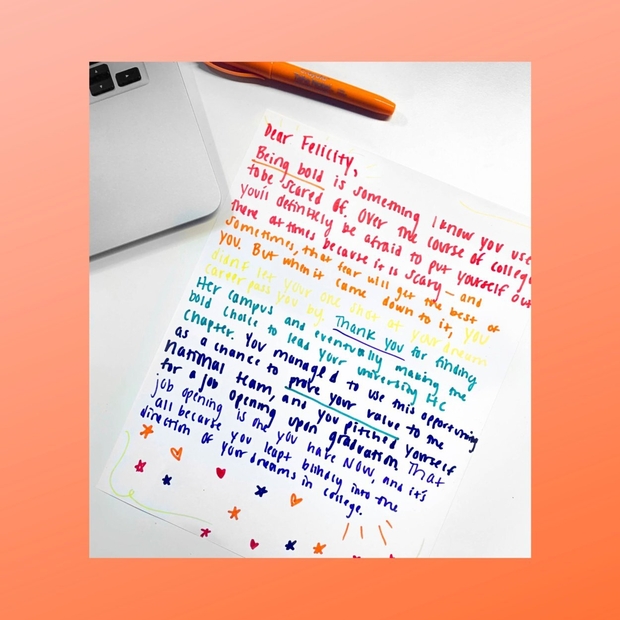 Dear Felicity,
Being bold is something I know you use
to be scared of. Over the course of colleg
you'll definitely be afraid to put yourself out
there at times because it is scary — and
sometimes, that fear will get the best of
you. But when it came down to it, you
didn't let your one shot at your dream
career pass you by. Thank you for finding
Her Campus and eventually making the
bold choice to lead your university HC
chapter. You managed to use this opportunity
as a chance to prove your value to the
national team, and you pitched yourself
for a job opening upon graduation. That
job opening is one you have NOW, and it's
all because you leapt blindly into the
direction of your dreams in college.